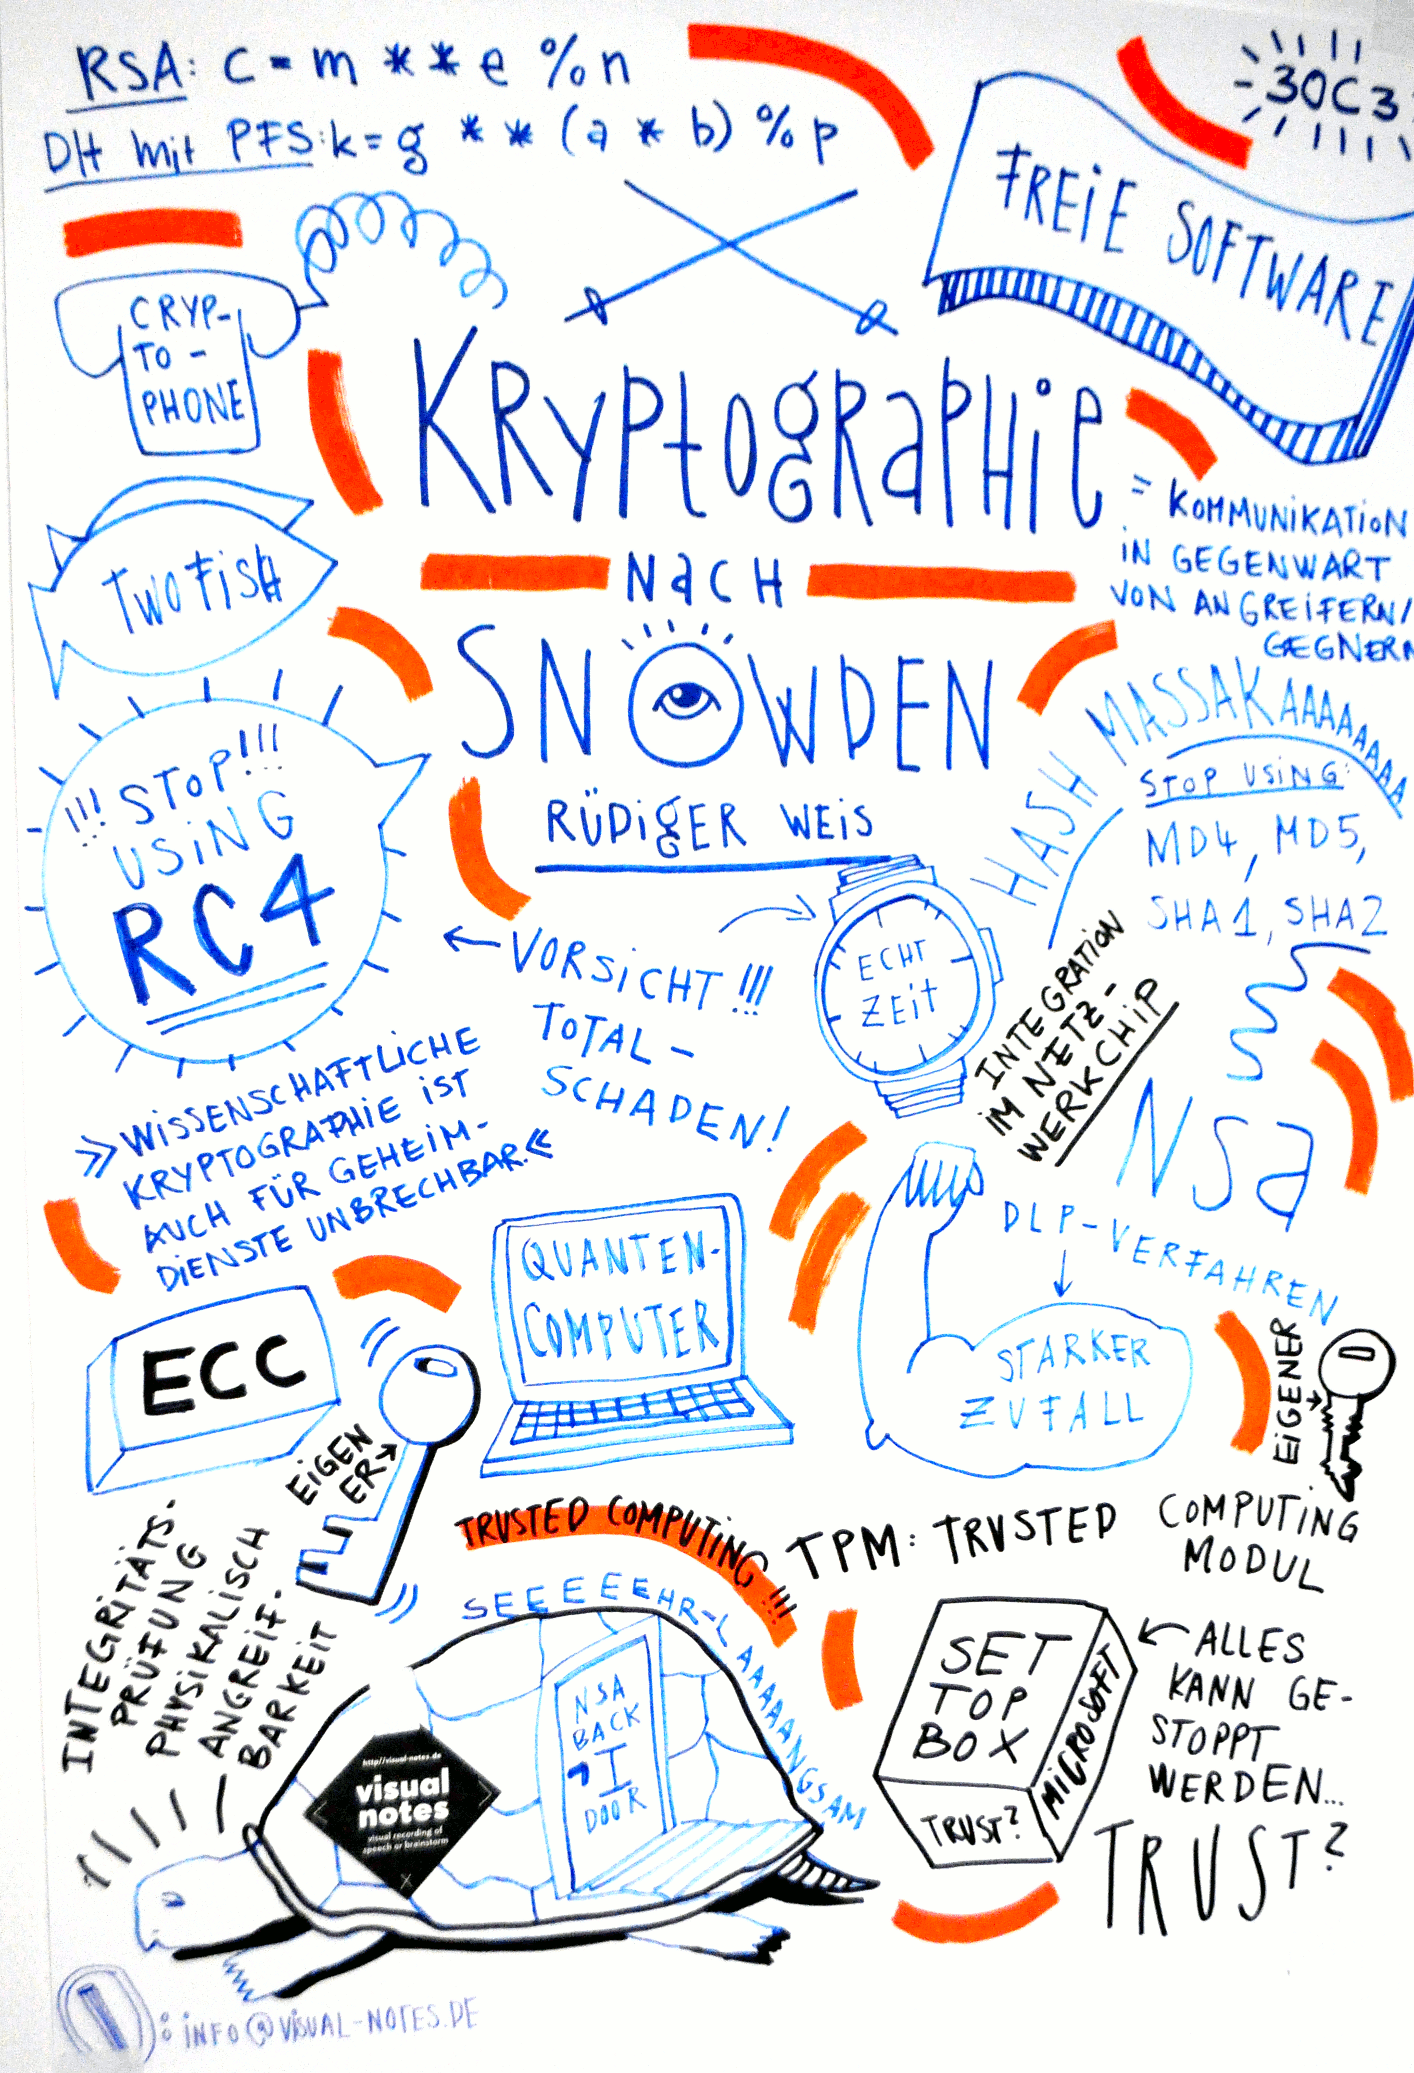 RSA: c = m ** e % n
DH mit PFS: k = g ** (a * b) % p
30C3
FREiE SOFTWARE
CRYP-
TO-
PHONE
KRYPtOGRaPHiE
= KOMMUNiKATiON
iN GEGENWART
VON ANGREiFERN/
GEGNERN
NaCH
SNOWDEN
RÜDiGER WEiS
TWOFiSH
!!! STOP!!!
USiNG
RC4
HASH MASSAKAAAAAAAA
STOP USiNG:
MD4, MD5,
SHA1, SHA2
NSa
← VORSiCHT!!!
TOTAL-
SCHADEN!
ECHT
ZEiT
iNTEGRATiON
iM NETZ-
WERKCHiP
» WiSSENSCHAFTLiCHE
KRYPTOGRAPHiE iST
AUCH FÜR GEHEiM-
DiENSTE UNBRECHBAR.«
QUANTEN-
COMPUTER
DLP-VERFAHREN
STARKER
ZUFALL
ECC
EiGEN
ER→
EiGENER
TRUSTED COMPUTiNG!!!
TPM: TRUSTED COMPUTiNG
MODUL
iNTEGRiTÄTS-
PRÜFUNG
PHYSiKALiSCH
ANGREiF-
BARKEiT
SEEEEEEHR-LAAAAAANGSAM
NSA
BACK
DOOR
http://visual-notes.de
visual
notes
visual recording of
speech or brainstorm
SET
TOP
BOX
MiCROSOFT
TRUST?
← ALLES
KANN GE-
STOPPT
WERDEN...
TRUST?
: iNFO@ViSUAL-NOTES.DE